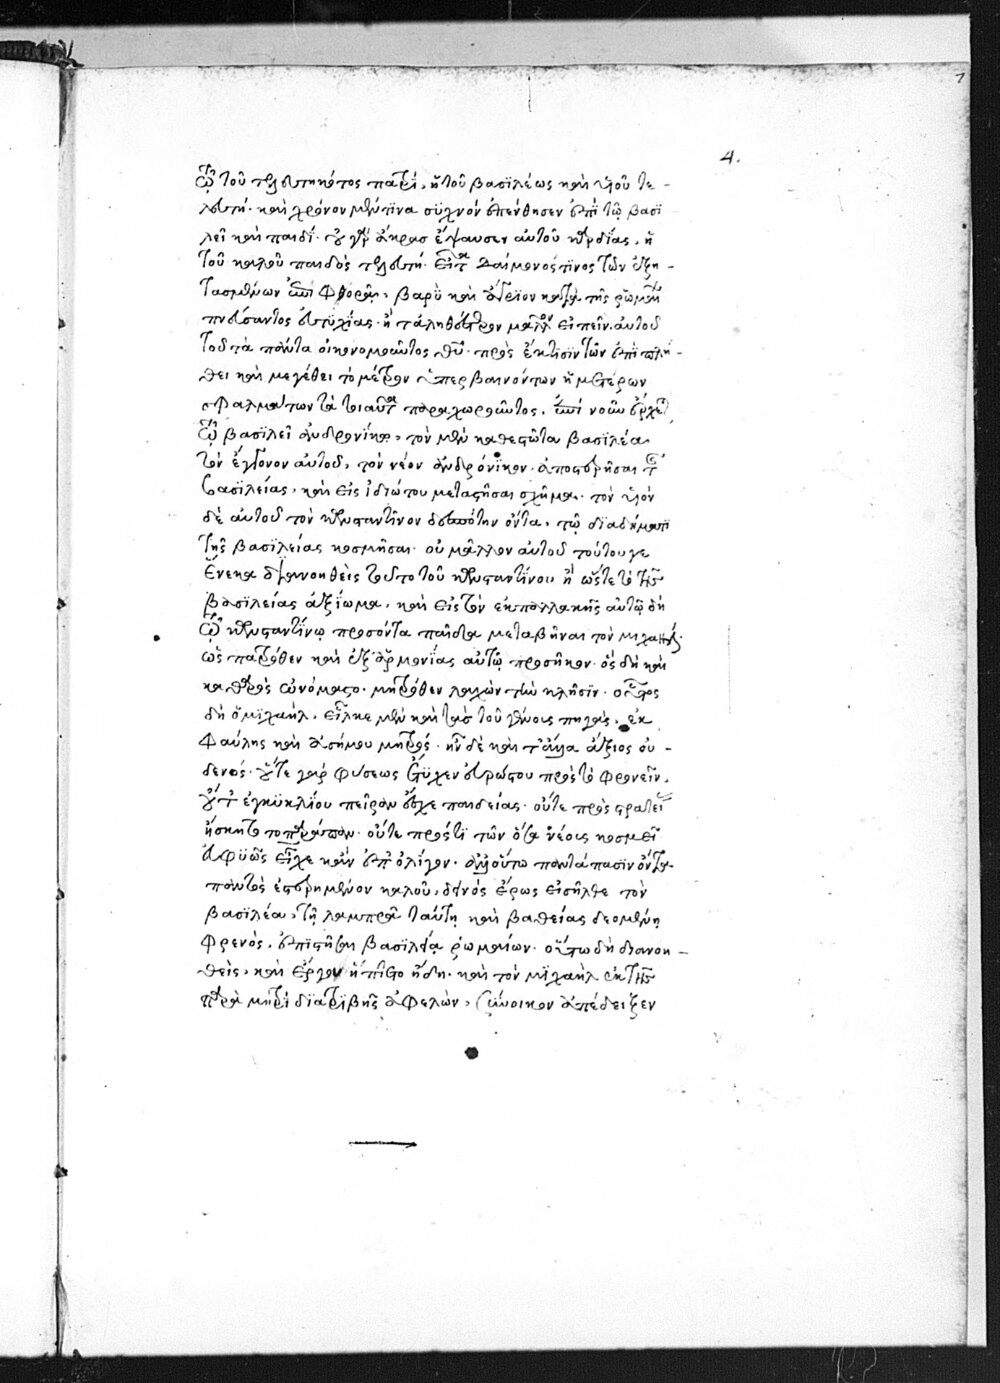 4.
τῷ τοῦ τελευτηκότος πατρὶ, ἢ τοῦ βασιλέως καὶ υἱοῦ τε-
λευτή· καὶ χρόνον μέν τινα συχνὸν ἐπένθησεν ἐπὶ τῷ βασι
λεῖ καὶ παιδί· οὐ γὰρ ἄκρας ἔψαυσεν αὐτοῦ καρδίας, ἡ
τοῦ καλοῦ παιδὸς τελευτή· εἶτα δαίμονός τινος τῶν ἐξη-
τασμένων ἐπὶ φθορᾷ, βαρὺ καὶ κατὰ τῆς ῥωμαίων
πνεύσαντος εὐτυχίας· ἢ τἀληθέστερον μᾶλλον εἰπεῖν. αὐτοῦ
τοῦ τὰ πάντα οἰκονομοῦντος θεοῦ· πρὸς ἔκτισιν τῶν ἐπὶ πλή-
θει καὶ μεγέθει τὸ μέτρον ὑπερβαινόντων ἡμετέρων
σφαλμάτων τὰ τοιαῦτα παραχωροῦντος, ἐπὶ νοῦν ἔρχεται
τῷ βασιλεῖ ἀνδρονίκῳ, τὸν μὲν καθεστῶτα βασιλέα
τὸν ἔγγονον αὐτοῦ, τὸν νέον ἀνδρόνικον· ἀποστερῆσαι τῆς
βασιλείας, καὶ εἰς ἰδιώτου μεταστῆσαι σχῆμα· τὸν υἱὸν
δὲ αὐτοῦ τὸν κωνσταντῖνον δεσπότην ὄντα, τῷ διαδήματι
τῆς βασιλείας κοσμῆσαι· οὐ μᾶλλον αὐτοῦ τούτου γε
ἕνεκα διανοηθεὶς τοῦτο τοῦ κωνσταντίνου ἢ ὥστε τὸ τῆς
βασιλείας ἀξίωμα, καὶ εἰς τὸν ἐκ παλλακῆς αὐτῷ δὴ
τῷ κωνσταντίνῳ προσόντα παῖδα μεταβῆναι τὸν μιχαὴλ·
ὡς πατρόθεν καὶ ἐξ ἁρμονίας αὐτῷ προσῆκον· ὃς δὴ καὶ
καθαρὸς ὠνόμαστο· μητρόθεν λαχὼν τὴν κλῆσιν· οὗτος
δὴ ὁ μιχαὴλ, εἷλκε μὲν καὶ τὰς τοῦ γένους πηγὰς, ἐκ
φαύλης καὶ ἀσήμου μητρός· ἦν δὲ καὶ τἆλλα ἄξιος οὐ-
δενός· οὔτε γὰρ φύσεως ἔτυχεν εὐτρόπου πρὸς τὸ φρονεῖν,
οὔτε ἐγκυκλίου πεῖραν ἔσχε παιδείας· οὔτε πρὸς στρατείαν
ἤσκητο τοπαράπαν· οὔτε πρός τι τῶν ὅσα νέους κοσμεῖ
εὐφυῶς εἶχε κἂν ἐπ' ὀλίγον· ἀλλ' οὕτω παντάπασιν ὄντα
παντὸς ἐστερημένον καλοῦ, δεινὸς ἔρως εἰσῆλθε τὸν
βασιλέα, τῇ λαμπρᾷ ταύτῃ καὶ βαθείας δεομένῃ
φρενὸς, ἐπιστῆσαι βασιλείᾳ ῥωμαίων· οὕτω δὴ διανοη-
θεὶς, καὶ ἔργον ἥπτετο ἤδη· καὶ τὸν μιχαὴλ ἐκ τῆς
παρὰ μητρὶ διατριβῆς ἀφελὼν, σύνοικον ἀπέδειξεν